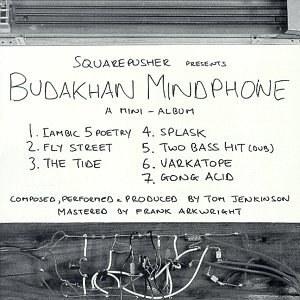 SQUAREPUSHER PRESENTS
BUDAKHAN MINDPHONE
A MINI-ALBUM
1. IAMBIC 5 POETRY
2. FLY STREET
3. THE TIDE
4. SPLASK
5. TWO BASS HIT (DUB)
6. VARKATOPE
7. GONG ACID
COMPOSED, PERFORMED & PRODUCED BY TOM JENKINSON
MASTERED BY FRANK ARKWRIGHT